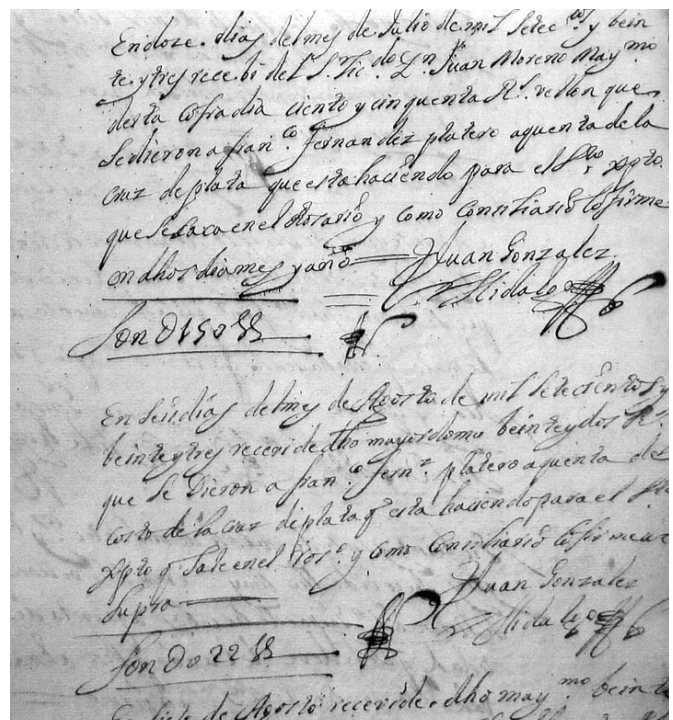 En doze dias del mes de Julio de mil setec.tos y bein
te y tres recebi del S. Lic.do Dn Juan Moreno Maymo
desta cofradia ciento y cinquenta Rs. vellon que
se dieron a fran.co fernandez platero aquenta de la
cruz de plata que esta haciendo para el Sto xpto.
que se saca en el Rosario y como Consiliario lo firme
en dhos dia mes y año
Juan Gonzalez
Hidalgo
Son D 150 Rs
En seis dias del mes de Agosto de mil setecientos y
beinte y tres recevi de dho mayordomo beinte y dos Rs.
que se Dieron a fran.co fern.z platero aquenta del
costo de la cruz de plata q esta haciendo para el Sto
Xpto q sale en el Ros.o y como Consiliario lo firme ut
supra
Juan Gonzalez
Hidalgo
Son Do 22 Rs
de Agosto recevi de dho may.mo beinte